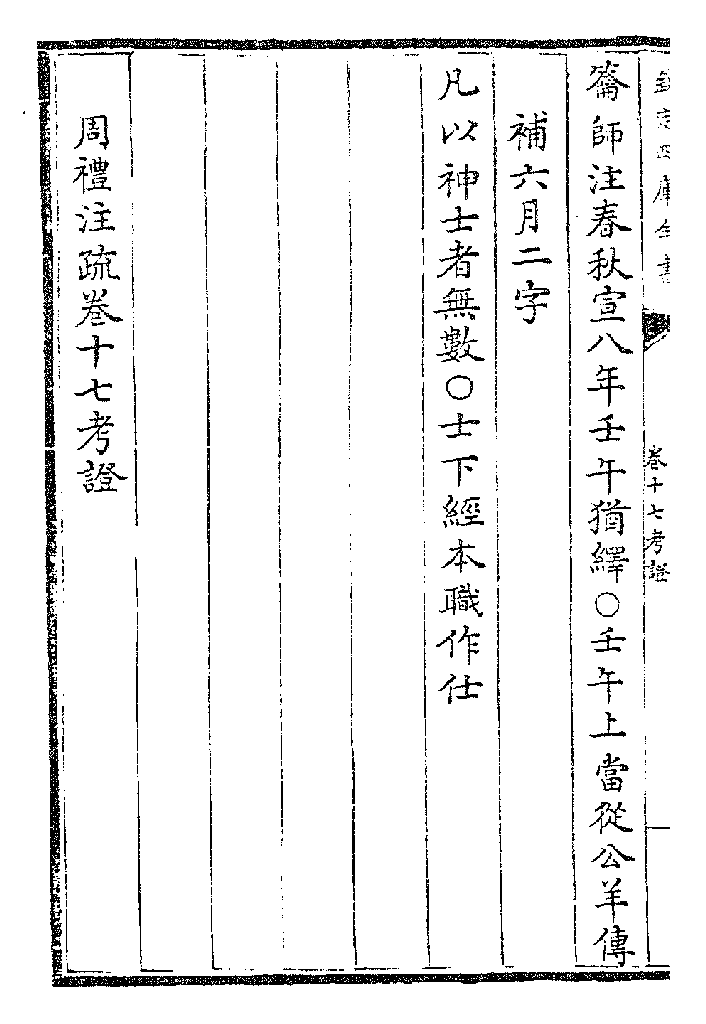 欽定四庫全書
卷十七考證
籥師注春秋宣八年壬午猶繹○壬午上當從公羊傳
補六月二字
凡以神士者無數○士下經本職作仕
周禮注疏卷十七考證